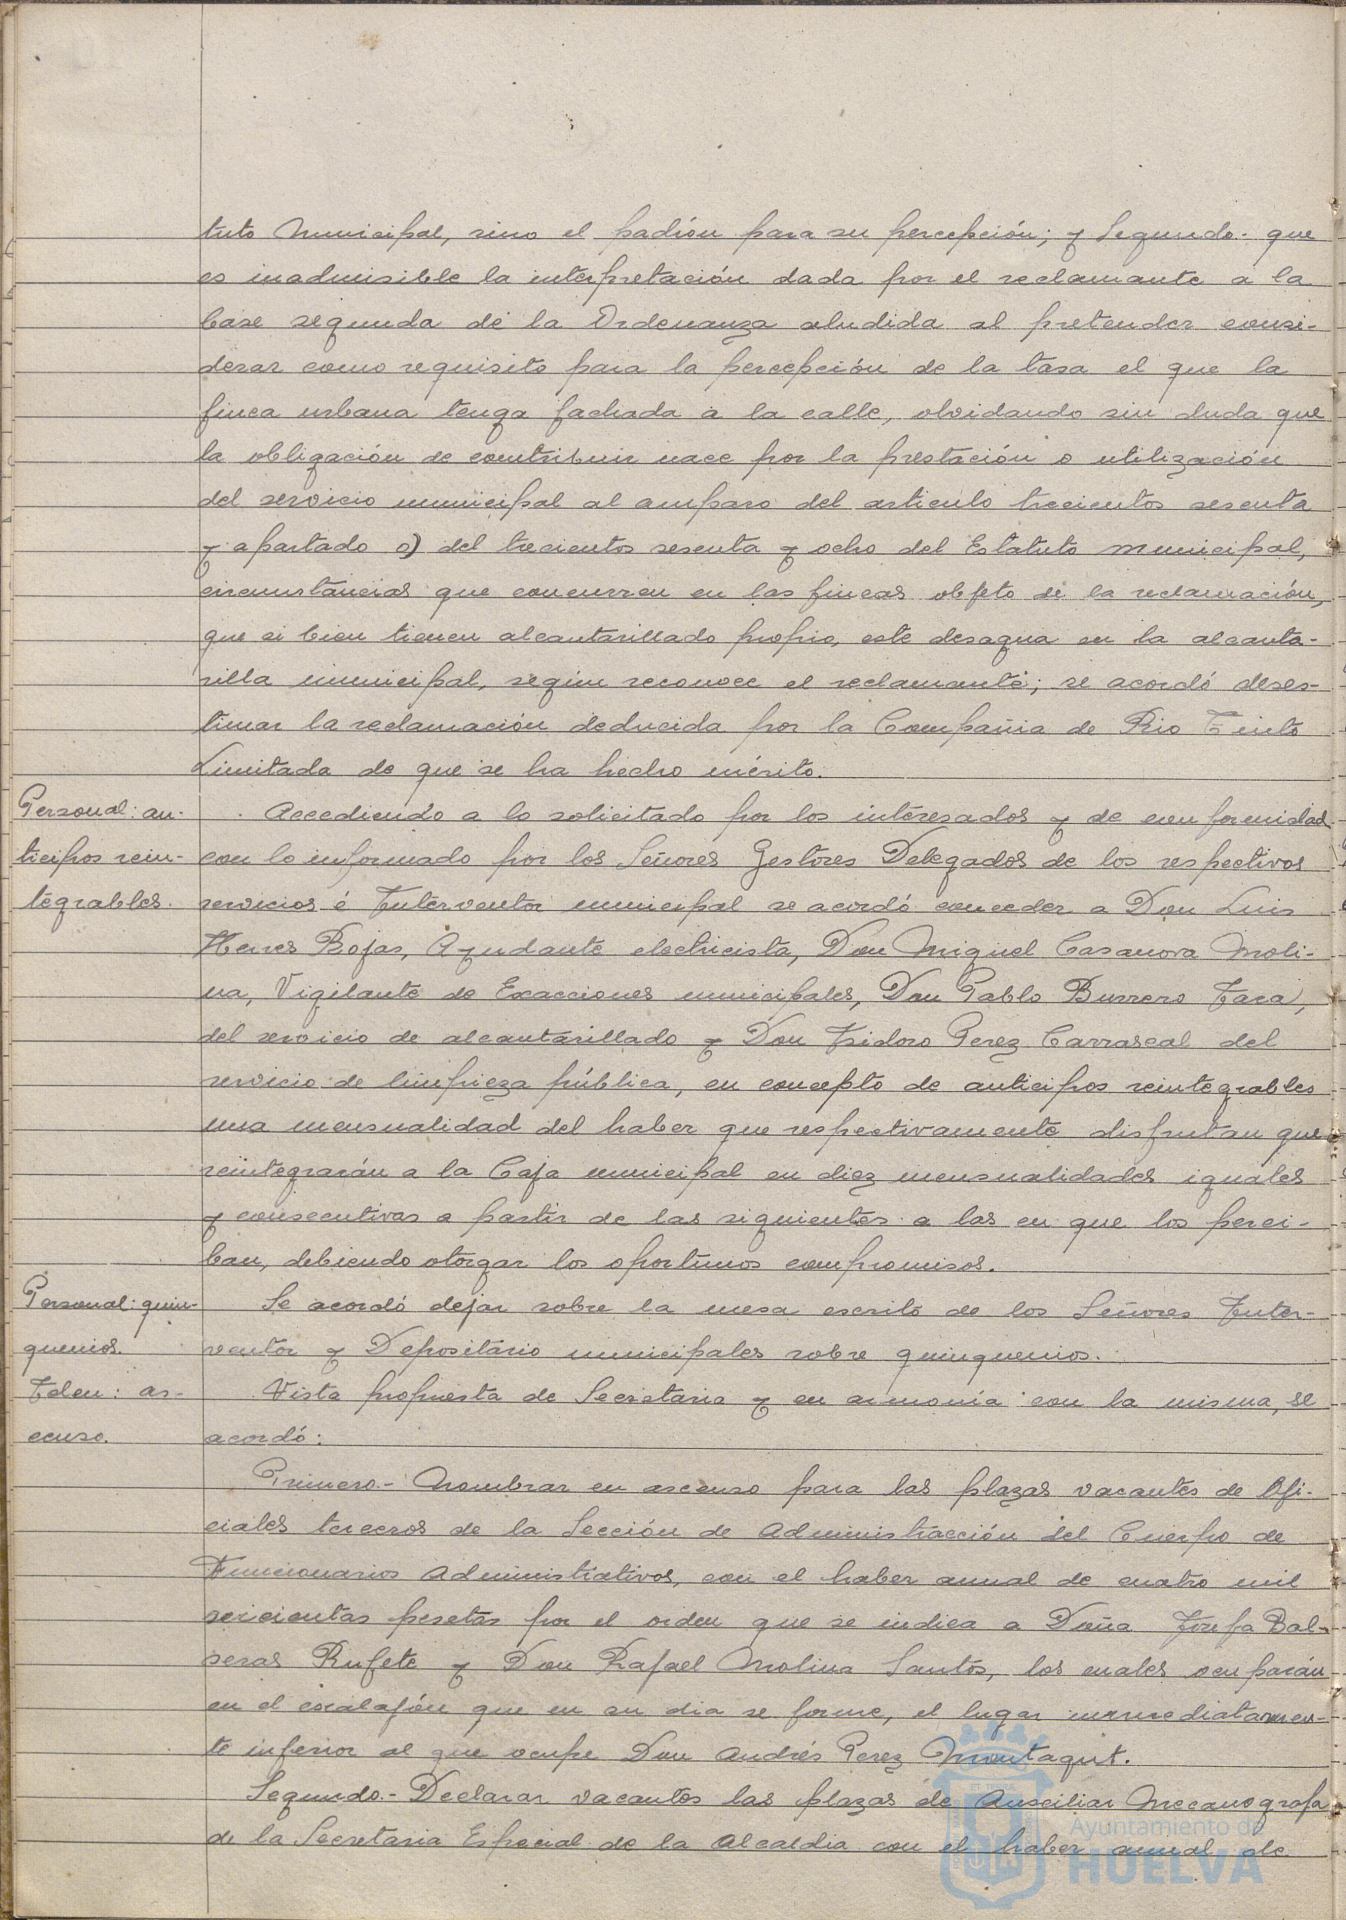 tuto Municipal, sino el padrón para su percepción; y Segundo.- que
es inadmisible la interpretación dada por el reclamante a la
base segunda de la Ordenanza aludida al pretender consi-
derar como requisito para la percepción de la tasa el que la
finca urbana tenga fachada a la calle, olvidando sin duda que
la obligación de contribuir nace por la prestación o utilización
del servicio municipal al amparo del articulo trecientos sesenta
y apartado o) del trecientos sesenta y ocho del Estatuto municipal,
circunstancias que concurren en las fincas objeto de la reclamación,
que si bien tienen alcantarillado propio, este desagua en la alcanta-
rilla municipal, según reconoce el reclamante; se acordó deses-
timar la reclamación deducida por la Compañia de Rio Tinto
Limitada de que se ha hecho mérito.
Personal: an-
ticipos rein-
tegrables.
Accediendo a lo solicitado por los interesados y de conformidad
con lo informado por los Señores Gestores Delegados de los respectivos
servicios é Interventor municipal se acordó conceder a Don Luis
Heres Rojas, Ayudante electricista, Don Miguel Casanova Moli-
na, Vigilante de Exacciones municipales, Don Pablo Burrero Jara,
del servicio de alcantarillado y Don Isidoro Perez Carrascal del
servicio de limpieza pública, en concepto de anticipos reintegrables
una mensualidad del haber que respectivamente disfrutan que
reintegrarán a la Caja municipal en diez mensualidades iguales
y consecutivas a partir de las siguientes a las en que los perci-
ban, debiendo otorgar los oportunos compromisos.
Personal: quin-
quenios.
Se acordó dejar sobre la mesa escrito de los Señores Inter-
ventor y Depositario municipales sobre quinquenios.
Idem: as-
censo.
Vista propuesta de Secretaria y en armonía con la misma, se
acordó:
Primero.- Nombrar en ascenso para las plazas vacantes de Ofi-
ciales terceros de la Sección de Administracción del Cuerpo de
Funcionarios Administrativos, con el haber anual de cuatro mil
seicientas pesetas por el orden que se indica a Doña Josefa Bal-
seras Rufete y Don Rafael Molina Santos, los cuales ocuparán
en el escalafón que en su dia se forme, el lugar inmediatamen-
te inferior al que ocupe Don Andrés Perez Montagut.
Segundo.- Declarar vacantes las plazas de Auxiliar Mecanografa
de la Secretaria Especial de la Alcaldia con el haber anual de
Ayuntamiento de
HUELVA